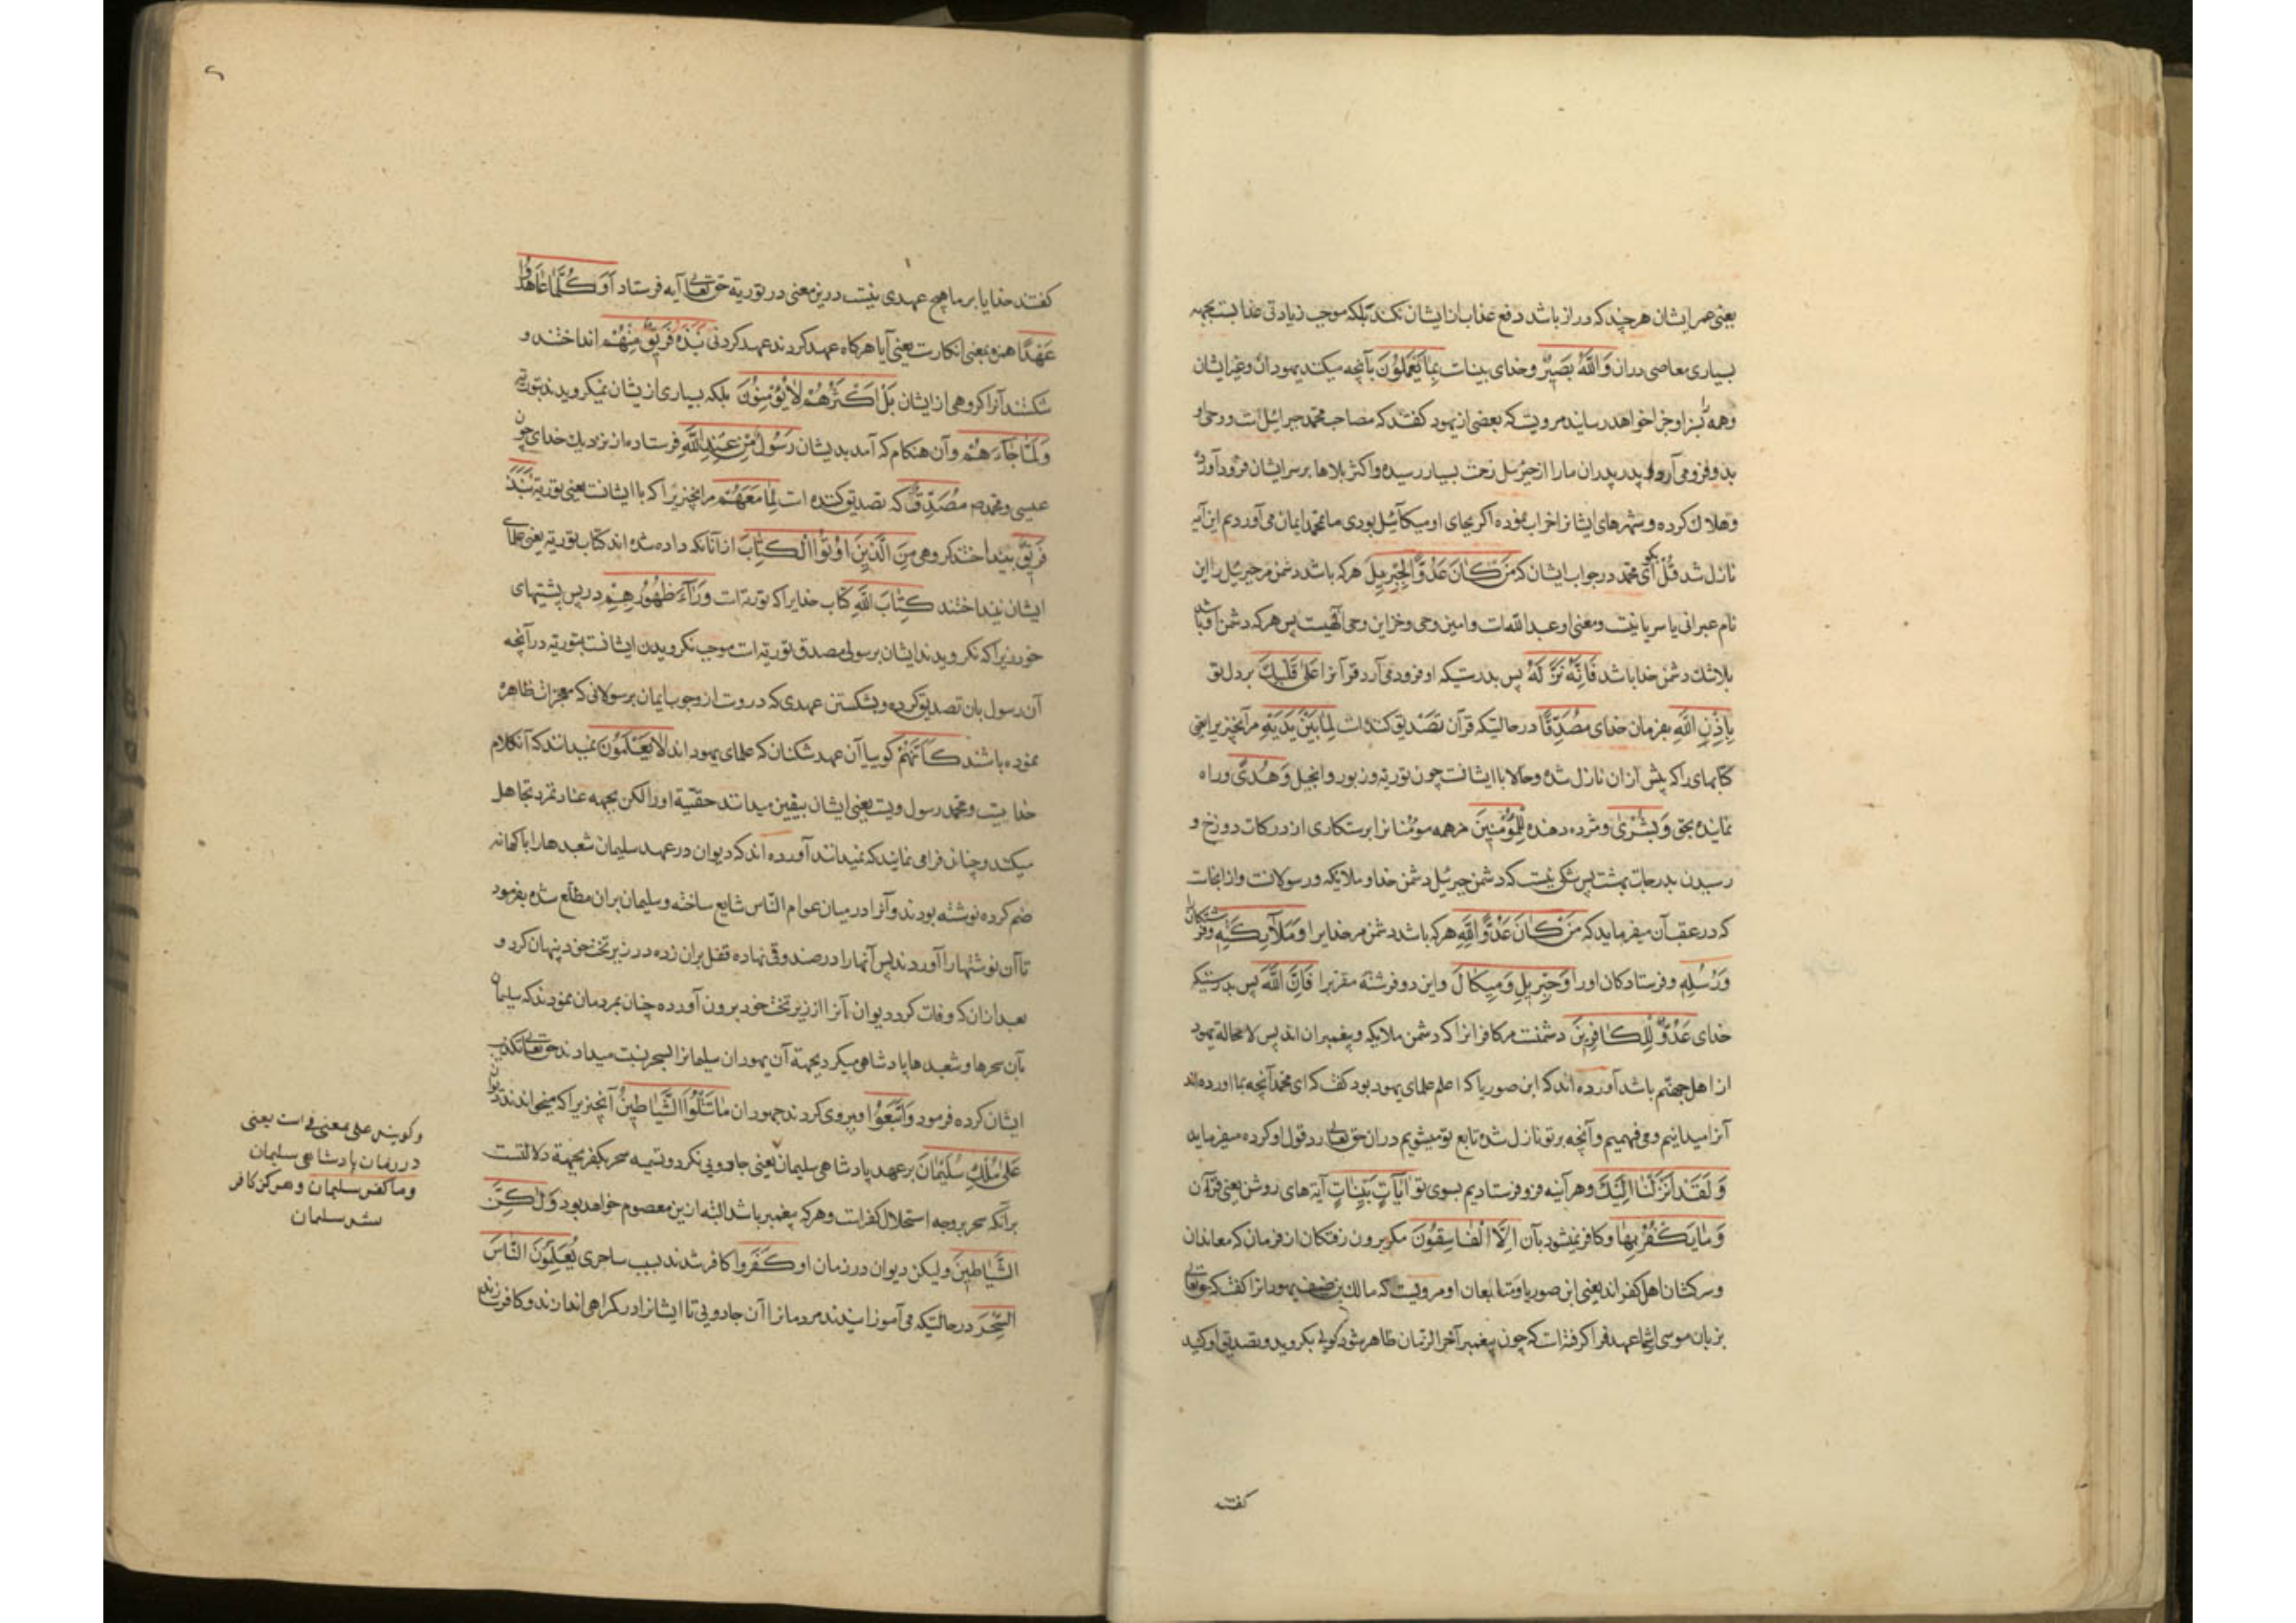 یعنی عمر ایشان هر چند که دراز باشد دفع عذاب از ایشان نکند بلکه موجب زیادتی عذابست بجهه
بسیاری معاصی دران وَاللَّهُ بَصِيرٌ وخدای بیناست بِمَا يَعْمَلُونَ بآنچه میکند یهودان وغیر ایشان
وهمه را جزا خواهد رسانید مرویست که بعضی از یهود کفتند که مصاحب محمد جبرائیل است و وحی او
فرو می آرد و پدر پدران ما را از جبرئیل زحمت بسیار رسیده واکثر بلاها بر سر ایشان فرود آورده
وهلاک کرده وشهرهای ایشانرا خراب نموده اکر بجای او میکائیل بودی ما بمحمد ایمان می آوردیم این آیه
نازل شد قُلْ بکو ای محمد در جواب ایشان که مَنْ كَانَ عَدُوًّا لِجِبْرِيلَ هر که باشد دشمن مر جبرئیل را این
نام عبرانی یا سریانیست ومعنی او عبد الله است وامین وحی وخزاین وحی الهیست پس هر که دشمن او باشد
بلا شک دشمن خدا باشد فَاِنَّهُ نَزَّلَهُ پس بدرستیکه او فرود می آرد قرآنرا عَلَى قَلْبِكَ بر دل تو
بِاِذْنِ اللَّهِ بفرمان خدای مُصَدِّقًا در حالتیکه قرآن تصدیق کننده است لِمَا بَيْنَ يَدَيْهِ مر آنچیزیرا یعنی
کتابهای را که پیش از آن نازل شده وحالا با ایشانست چون توریة وزبور وانجیل وَهُدًى وراه
نماینده بحق وَبُشْرَى ومژده دهنده لِلْمُؤْمِنِينَ مر همه مومنانرا برستکاری از درکات دوزخ و
رسیدن بدرجات بهشت پس شکی نیست که دشمن جبرئیل دشمن خدا وملایکه ورسولانست واز اینجاست
که در عقب آن میفرماید که مَنْ كَانَ عَدُوًّا لِلَّهِ هر که باشد دشمن مر خدایرا وَمَلَآئِكَتِهِ وفرشتکان را
وَرُسُلِهِ وفرستادکان اورا وَجِبْرِيلَ وَمِيكَالَ واین دو فرشته مقرب را فَاِنَّ اللَّهَ پس بدرستیکه
خدای عَدُوٌّ لِلْكَافِرِينَ دشمنست مر کافرانرا که دشمن ملایکه وپیغمبران اند پس لا محاله یهود
از اهل جهنم باشد آورده اند که ابن صوریا که اعلم علمای یهود بود کفت که ای محمد آنچه بما آورده اند
آنرا میدانیم ومی فهمیم وآنچه بر تو نازل شده تابع تو میشویم دران حق تعالی رد قول او کرده میفرماید
وَلَقَدْ اَنْزَلْنَا اِلَيْكَ وهر آینه فرو فرستادیم بسوی تو اٰيَاتٍ بَيِّنَاتٍ آیه های روشن یعنی قرآن
وَمَا يَكْفُرُ بِهَا وکافر نمیشود بآن اِلَّا الْفَاسِقُونَ مکر برون رفتکان از فرمان که معاندان
وسرکشان اهل کفر اند یعنی ابن صوریا ومتابعان او مرویست که مالک بن ضیف یهودانرا کفت که حق تعالی
بزبان موسی از شما عهد فرا کرفته است که چون پیغمبر آخر الزمان ظاهر شود بکروید وتصدیق او کنید
کفتند
کفتند خدایا بر ما هیچ عهدی نیست درین معنی در توریة حق تعالی آیه فرستاد اَوَكُلَّمَا عَاهَدُوا
عَهْدًا همزه بمعنی انکارست یعنی آیا هر کاه عهد کردند عهد کردنی نَبَذَهُ فَرِيقٌ مِنْهُمْ انداختند و
شکستند آنرا کروهی از ایشان بَلْ اَكْثَرُهُمْ لَا يُؤْمِنُونَ بلکه بسیاری ازیشان نمیکرویدند بتوریه
وَلَمَّا جَاءَهُمْ وآن هنکام که آمد بدیشان رَسُولٌ مِنْ عِنْدِ اللَّهِ فرستاده از نزدیک خدای چون
عیسی ومحمد مُصَدِّقٌ که تصدیق کننده است لِمَا مَعَهُمْ مر آنچیزیرا که با ایشانست یعنی توریة نَبَذَ
فَرِيقٌ بینداختند کروهی مِنَ الَّذِينَ اُوتُوا الْكِتَابَ از آنانکه داده شده اند کتاب توریة یعنی علمای
ایشان بینداختند كِتَابَ اللَّهِ کتاب خدایرا که توریة است وَرَاءَ ظُهُورِهِمْ در پس پشتهای
خود زیرا که نکرویدند ایشان برسولی مصدق توریة است موجب نکرویدن ایشانست بتوریة در آنچه
آن رسول بان تصدیق کرده وبشکستن عهدی که دروست از وجوب ایمان برسولانی که معجزات ظاهره
نموده باشند كَاَنَّهُمْ کوییا آن عهد شکنان که علمای یهود اند لَا يَعْلَمُونَ نمیدانند که آن کلام
خداییست ومحمد رسول ویست یعنی ایشان بیقین میدانند حقیة اورا لکن بجهه عناد تمرد تجاهل
میکنند وچنان فرا می نمایند که نمیدانند آورده اند که دیوان در عهد سلیمان شعبدهارا با کهانه
ضم کرده نوشته بودند وآنرا در میان عوام الناس شایع ساخته وسلیمان بران مطلع شده بفرمود
تا آن نوشتهارا آوردند پس آنهارا در صندوقی نهاده قفل بران زده در زیر تخت خود پنهان کرد و
بعد ازان که وفات کرد دیوان آنرا از زیر تخت خود برون آورده چنان بمردمان نمودند که سلیمان
بآن سحرها وشعبدها پادشاهی میکرد بجهة آن یهودان سلیمانرا بسحر نسبت میدادند حق تعالی تکذیب
ایشان کرده فرمود وَاتَّبَعُوا وپیروی کردند جهودان مَا تَتْلُوا الشَّيَاطِينُ آنچیزیرا که میخواندند دیوان
عَلَى مُلْكِ سُلَيْمَانَ بر عهد پادشاهی سلیمان یعنی جادویی نکرد وتسمیه سحر بکفر بجهة دلالتست
برآنکه سحر بر وجه استحلال کفرست وهر که پیغمبر باشد البته ازین معصوم خواهد بود وَلٰكِنَّ
الشَّيَاطِينَ ولیکن دیوان در زمان او كَفَرُوا کافر شدند بسبب ساحری يُعَلِّمُونَ النَّاسَ
السِّحْرَ در حالتیکه می آموزانیدند مردمانرا آن جادویی تا ایشانرا در کمراهی اندازند وکافر
وکویند علی بمعنی فی است یعنی
در زمان پادشاهی سلیمان
وما کفر سلیمان وهرکز کافر
نشد سلیمان